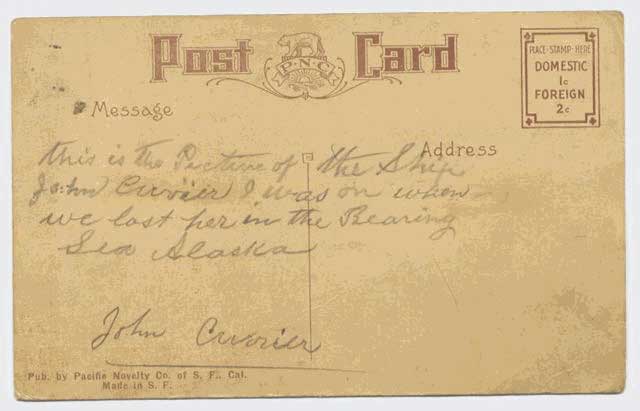 Post Card
P·N·C
PLACE·STAMP·HERE
DOMESTIC
1c
FOREIGN
2c
Message
Address
this is the Picture of the Ship
John Currier I was on when
we lost her in the Bearing
Sea Alaska
John Currier
Pub. by Pacific Novelty Co. of S. F., Cal.
Made in S. F.